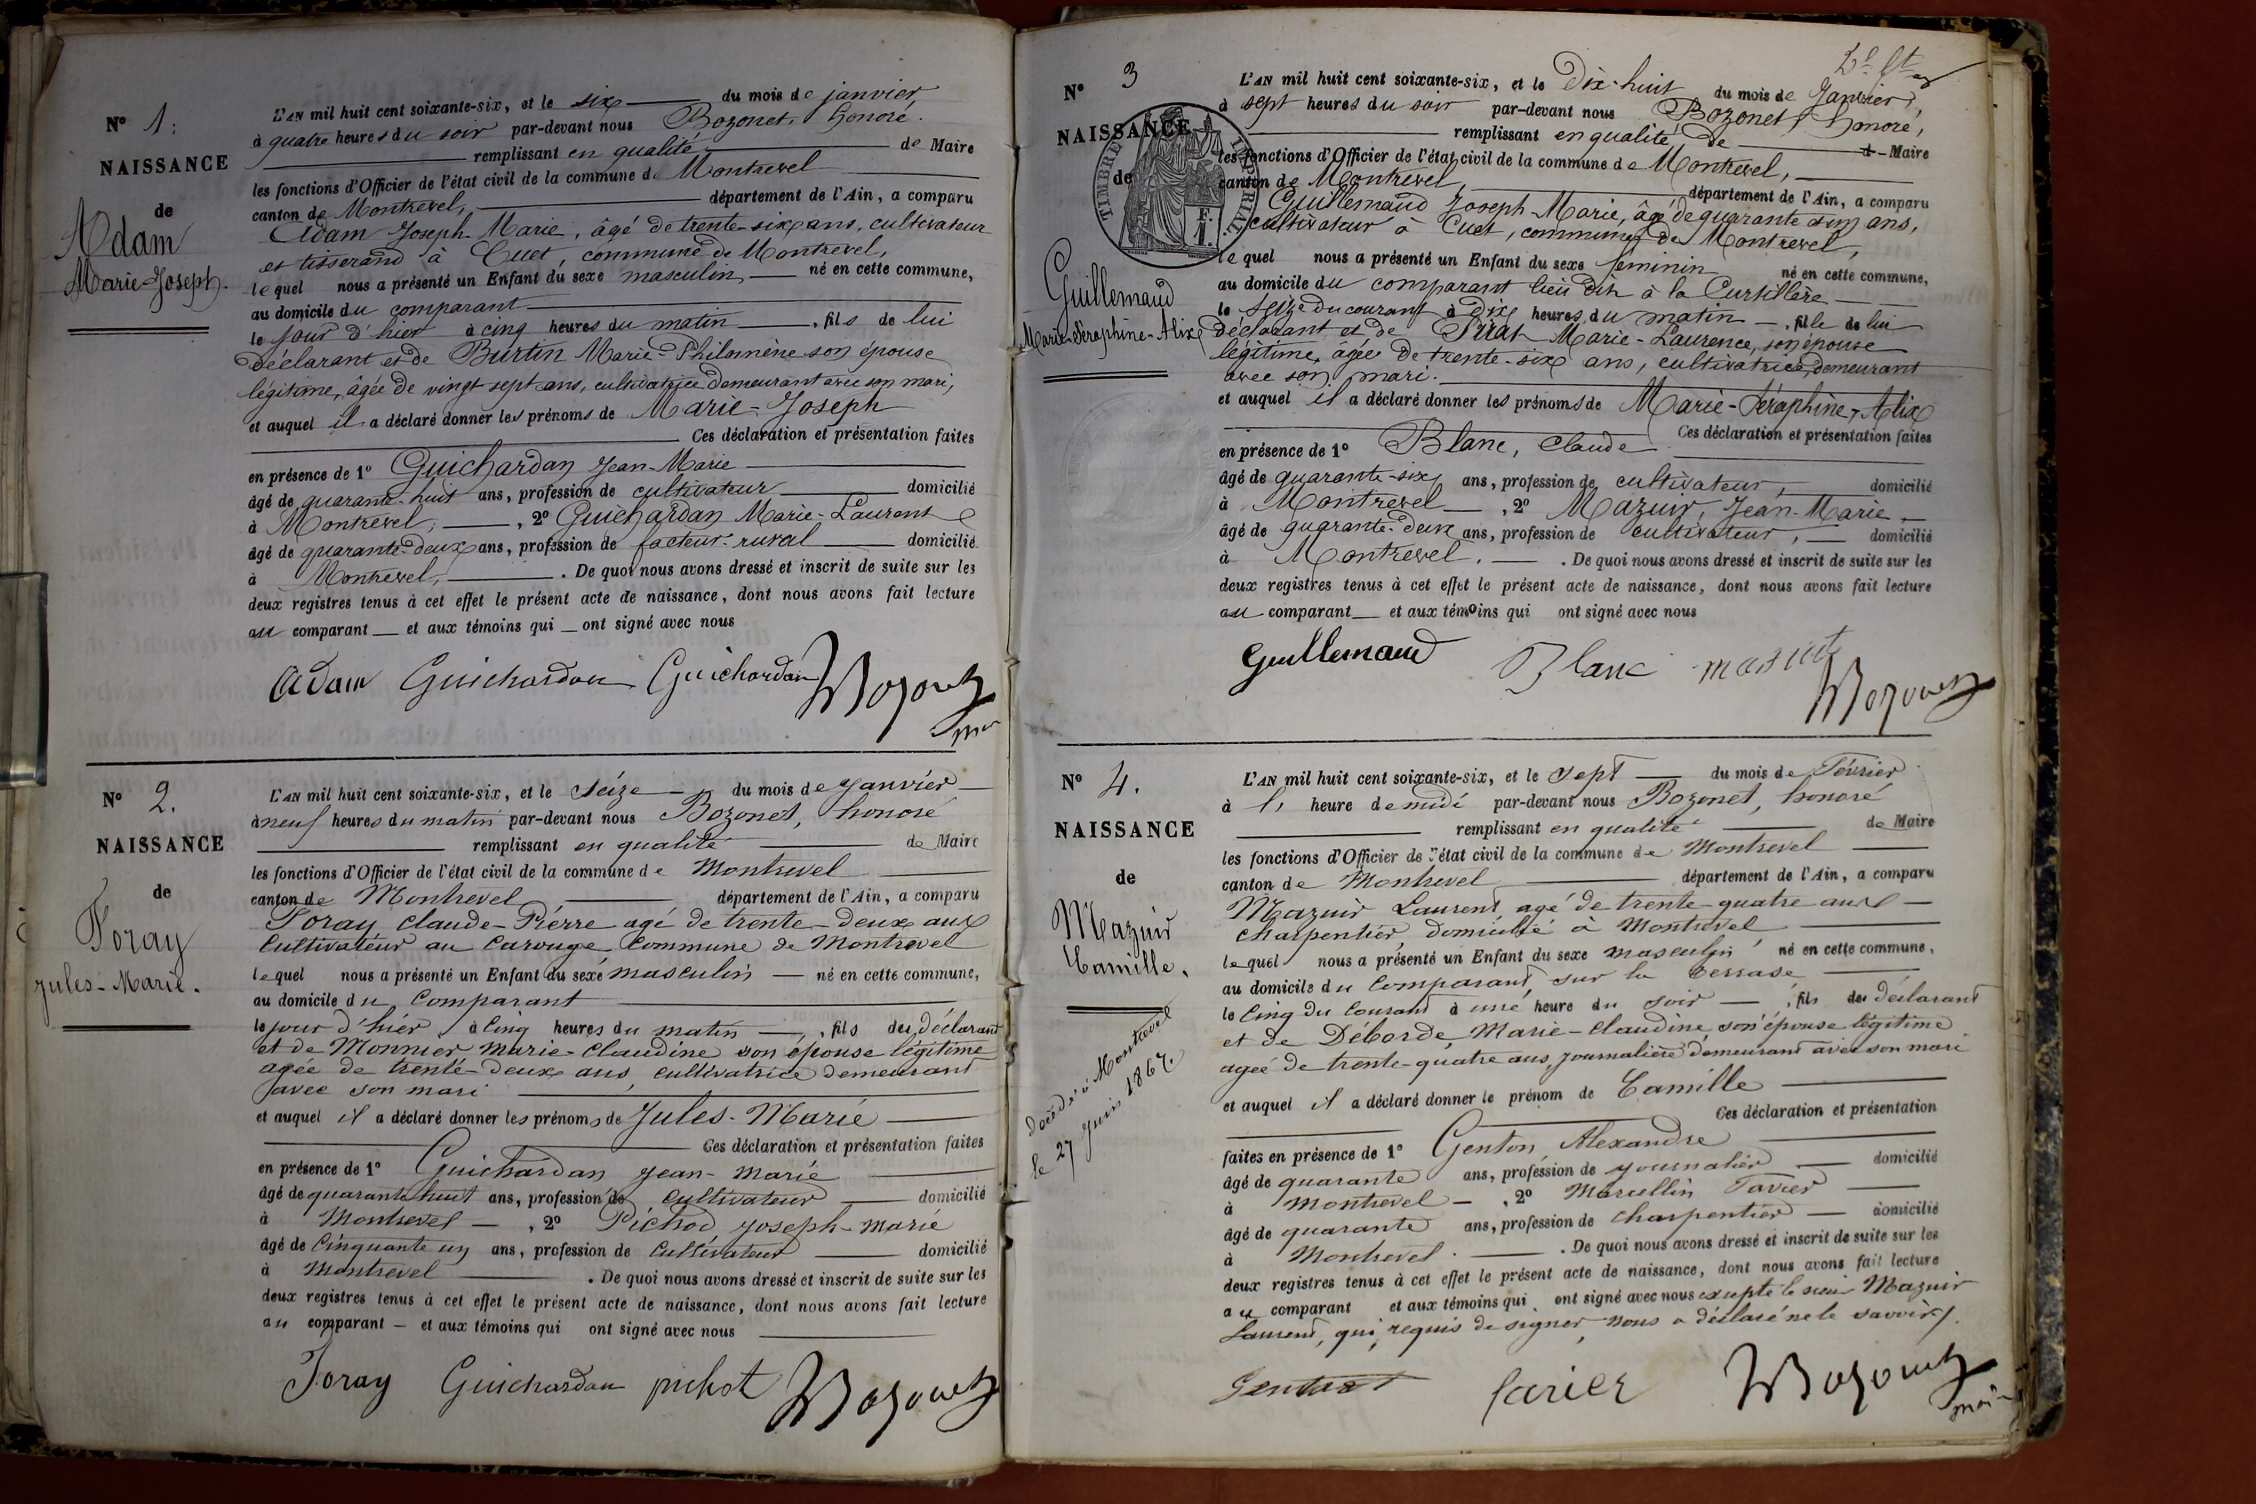 N° 1.
NAISSANCE
de
Adam
Marie-Joseph.
L'AN mil huit cent soixante-six, et le six du mois de janvier,
à quatre heures du soir par-devant nous Bozonet, honoré.
remplissant en qualité de Maire
les fonctions d'Officier de l'état civil de la commune de Montrevel
canton de Montrevel, département de l'Ain, a comparu
Adam Joseph-Marie, âgé de trente-six ans, cultivateur
et tisserand à Cuet, commune de Montrevel,
lequel nous a présenté un Enfant du sexe masculin né en cette commune,
au domicile du comparant
le jour d'hier à cinq heures du matin, fils de lui
déclarant et de Burtin Marie-Philomène son épouse
légitime, âgée de vingt sept ans, cultivatrice demeurant avec son mari,
et auquel il a déclaré donner les prénoms de Marie-Joseph
Ces déclaration et présentation faites
en présence de 1° Guichardan Jean-Marie
âgé de quarante-huit ans, profession de cultivateur domicilié
à Montrevel, 2° Guichardan Marie-Laurent
âgé de quarante-deux ans, profession de facteur-rural domicilié
à Montrevel, . De quoi nous avons dressé et inscrit de suite sur les
deux registres tenus à cet effet le présent acte de naissance, dont nous avons fait lecture
au comparant et aux témoins qui ont signé avec nous
Adam Guichardan Guichardan Bozonet
N° 2.
NAISSANCE
de
Foray
Jules-Marie.
L'AN mil huit cent soixante-six, et le seize du mois de janvier
à neuf heures du matin par-devant nous Bozonet, honoré
remplissant en qualité de Maire
les fonctions d'Officier de l'état civil de la commune de Montrevel
canton de Montrevel, département de l'Ain, a comparu
Foray Claude-Pierre agé de trente-deux ans
Cultivateur au Carouge Commune de Montrevel
lequel nous a présenté un Enfant du sexe masculin né en cette commune,
au domicile du Comparant
le jour d'hier, à cinq heures du matin, fils du déclarant
et de Monnier Marie-Claudine son épouse légitime
agée de trente-deux ans, cultivatrice demeurant
avec son mari
et auquel il a déclaré donner les prénoms de Jules-Marie
Ces déclaration et présentation faites
en présence de 1° Guichardan Jean-Marie
âgé de quarante huit ans, profession de Cultivateur domicilié
à Montrevel, 2° Pichod Joseph-Marie
âgé de Cinquante un ans, profession de Cultivateur domicilié
à Montrevel . De quoi nous avons dressé et inscrit de suite sur les
deux registres tenus à cet effet le présent acte de naissance, dont nous avons fait lecture
au comparant et aux témoins qui ont signé avec nous
Foray Guichardan pichot Bozonet
N° 3
NAISSANCE
de
TIMBRE IMPERIAL
Guillemaud
Marie-Séraphine-Alix
L'AN mil huit cent soixante-six, et le Dix-huit du mois de Janvier,
à sept heures du soir par-devant nous Bozonet, honoré,
remplissant en qualité de Maire
les fonctions d'Officier de l'état civil de la commune de Montrevel,
canton de Montrevel, département de l'Ain, a comparu
Guillemaud Joseph-Marie, âgé de quarante cinq ans,
cultivateur à Cuet, commune de Montrevel,
lequel nous a présenté un Enfant du sexe féminin né en cette commune,
au domicile du comparant lieu dit à la
le seize du courant à dix heures du matin, fille de lui
déclarant et de Marie-Laurence, son épouse
légitime, âgée de trente-six ans, cultivatrice, demeurant
avec son mari.
et auquel il a déclaré donner les prénoms de Marie-Séraphine-Alix
Ces déclaration et présentation faites
en présence de 1° Blanc, Claude
âgé de quarante-six ans, profession de cultivateur, domicilié
à Montrevel, 2° Mazuir, Jean-Marie
âgé de quarante-deux ans, profession de cultivateur, domicilié
à Montrevel. . De quoi nous avons dressé et inscrit de suite sur les
deux registres tenus à cet effet le présent acte de naissance, dont nous avons fait lecture
au comparant et aux témoins qui ont signé avec nous
Guillemaud Blanc Bozonet
N° 4.
NAISSANCE
de
Mazuir
Camille.
Décédé à Montrevel
le 27 Juin 1867.
L'AN mil huit cent soixante-six, et le sept du mois de Février
à heure de midi par-devant nous Bozonet, honoré
remplissant en qualité de Maire
les fonctions d'Officier de l'état civil de la commune de Montrevel
canton de Montrevel département de l'Ain, a comparu
Mazuir Laurent agé de trente quatre ans
charpentier, domicilié à Montrevel
lequel nous a présenté un Enfant du sexe masculin né en cette commune,
au domicile du Comparant, sur la terrasse
le Cinq du Courant à une heure du soir, fils du déclarant
et de Déborde Marie-Claudine son épouse légitime
agée de trente-quatre ans, journalière demeurant avec son mari
et auquel il a déclaré donner le prénom de Camille
Ces déclaration et présentation
faites en présence de 1° Genton, Alexandre
âgé de quarante ans, profession de journalier domicilié
à Montrevel, 2° Marcellin Favier
âgé de quarante ans, profession de charpentier domicilié
à Montrevel. . De quoi nous avons dressé et inscrit de suite sur les
deux registres tenus à cet effet le présent acte de naissance, dont nous avons fait lecture
au comparant et aux témoins qui ont signé avec nous excepté le sieur Mazuir
Laurent, qui, requis de signer, nous a déclaré ne le savoir.
Bozonet